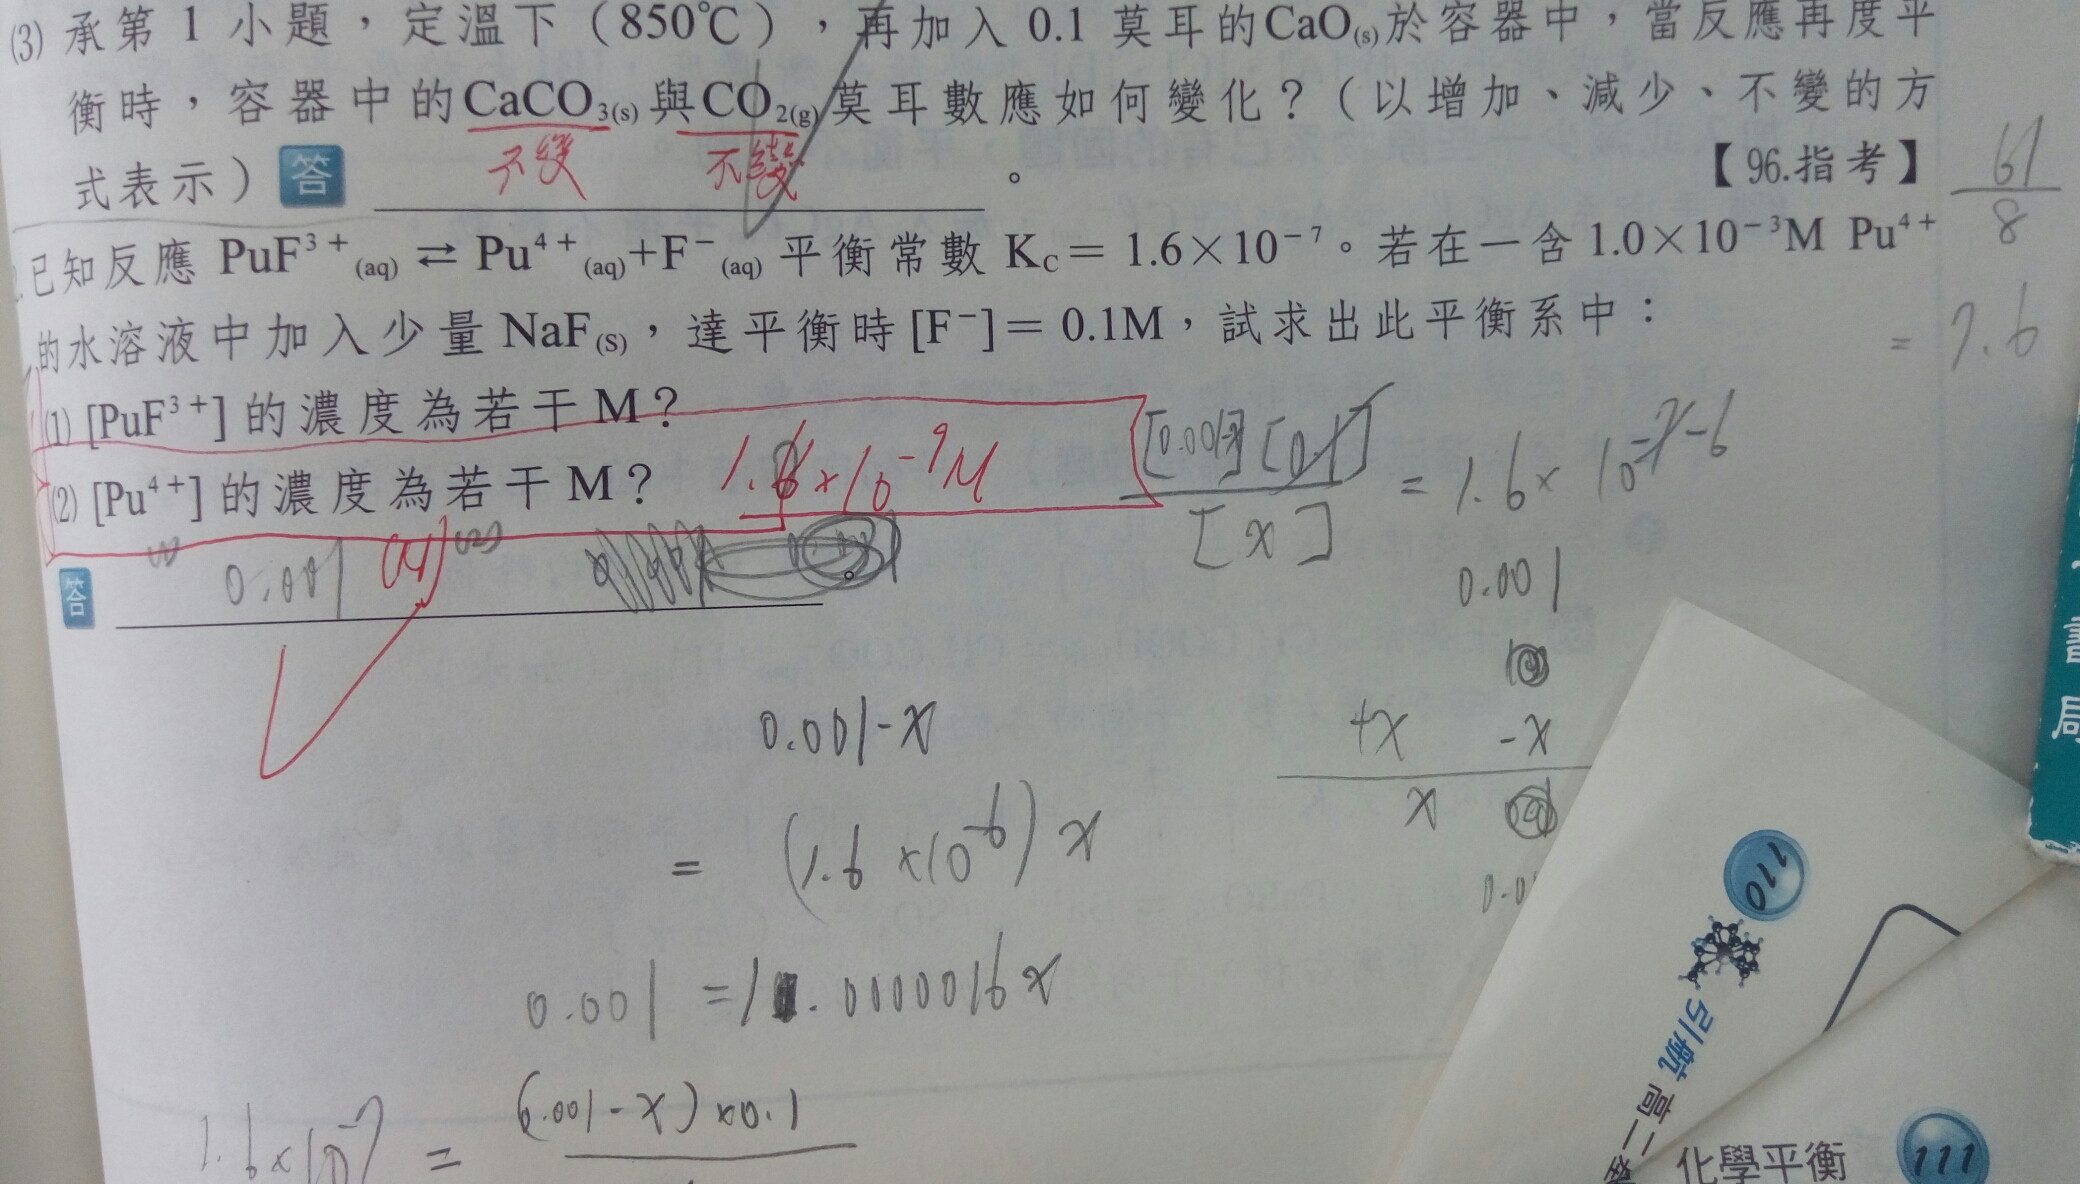 (3) 承第 1 小題，定溫下（850℃），再加入 0.1 莫耳的CaO(s)於容器中，當反應再度平
衡時，容器中的CaCO3(s)與CO2(g)莫耳數應如何變化？（以增加、減少、不變的方
式表示）答 不變 不變 。 【96.指考】
已知反應 PuF³⁺(aq) ⇄ Pu⁴⁺(aq)+F⁻(aq) 平衡常數 KC＝ 1.6×10⁻⁷。若在一含1.0×10⁻³M Pu⁴⁺
的水溶液中加入少量NaF(s)，達平衡時[F⁻]＝ 0.1M，試求出此平衡系中：
(1) [PuF³⁺] 的濃度為若干M？
(2) [Pu⁴⁺] 的濃度為若干M？ 1.6×10⁻⁹M
答 (1) 0.001 (2) 。
61
8
= 7.6
[0.001-x][0.1]
[x]
= 1.6×10⁻⁷⁻⁶
0.001
+x -x
x
0.001-x
= (1.6×10⁻⁶)x
0.001 = 1.0000016x
1.6×10⁻⁷ = (0.001-x)×0.1
110
引航 高二
化學平衡 111
書局